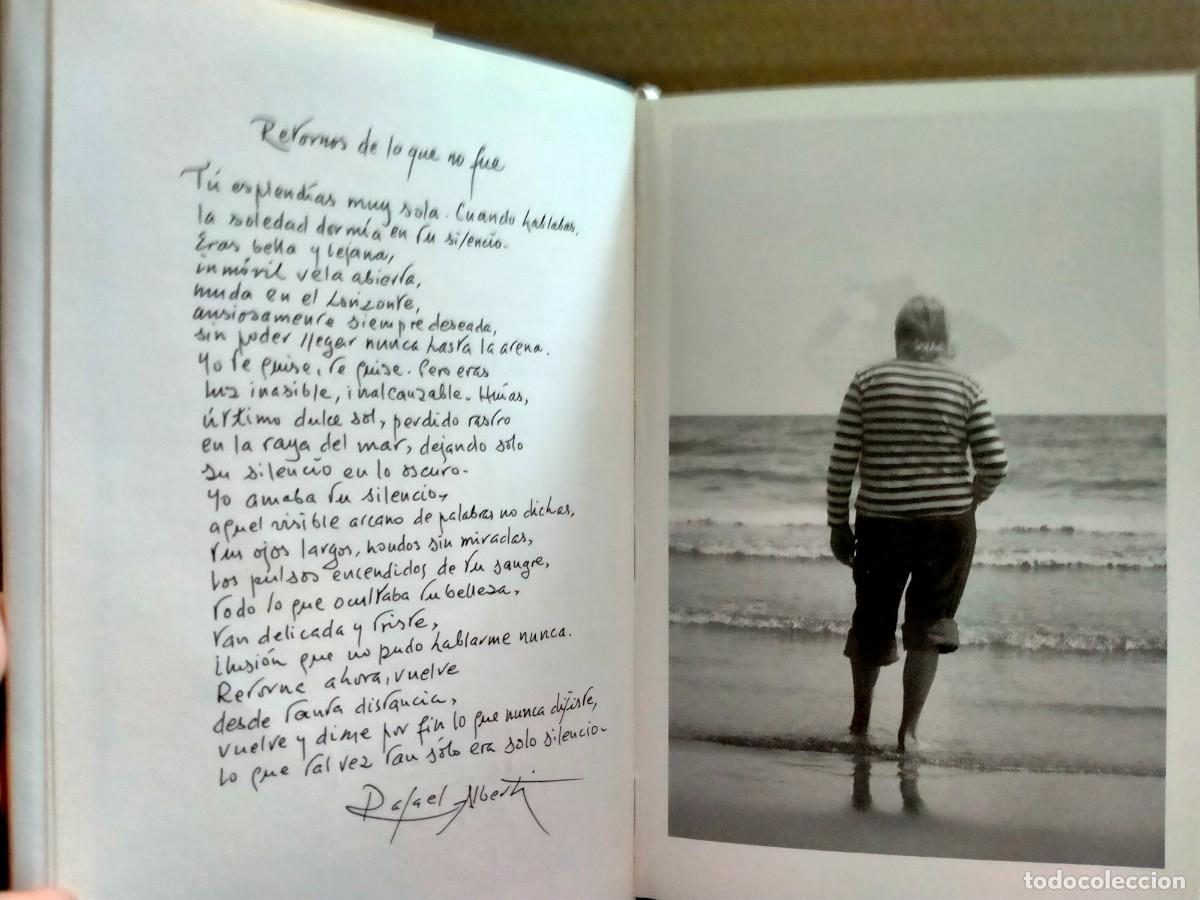 Retornos de lo que no fue
Tú esplendías muy sola. Cuando hablabas,
la soledad dormía en tu silencio.
Eras bella y lejana,
inmóvil vela abierta,
muda en el horizonte,
ansiosamente siempre deseada,
sin poder llegar nunca hasta la arena.
Yo te quise, te quise. Pero eras
luz inasible, inalcanzable. Huías,
último dulce sol, perdido rastro
en la raya del mar, dejando solo
su silencio en lo oscuro.
Yo amaba tu silencio,
aquel visible arcano de palabras no dichas,
tus ojos largos, hondos sin miradas,
los pulsos encendidos de tu sangre,
todo lo que ocultaba tu belleza,
tan delicada y triste,
ilusión que no pudo hablarme nunca.
Retorna ahora, vuelve
desde tanta distancia,
vuelve y dime por fin lo que nunca dijiste,
lo que tal vez tan sólo era solo silencio.
Rafael Alberti
todocoleccion